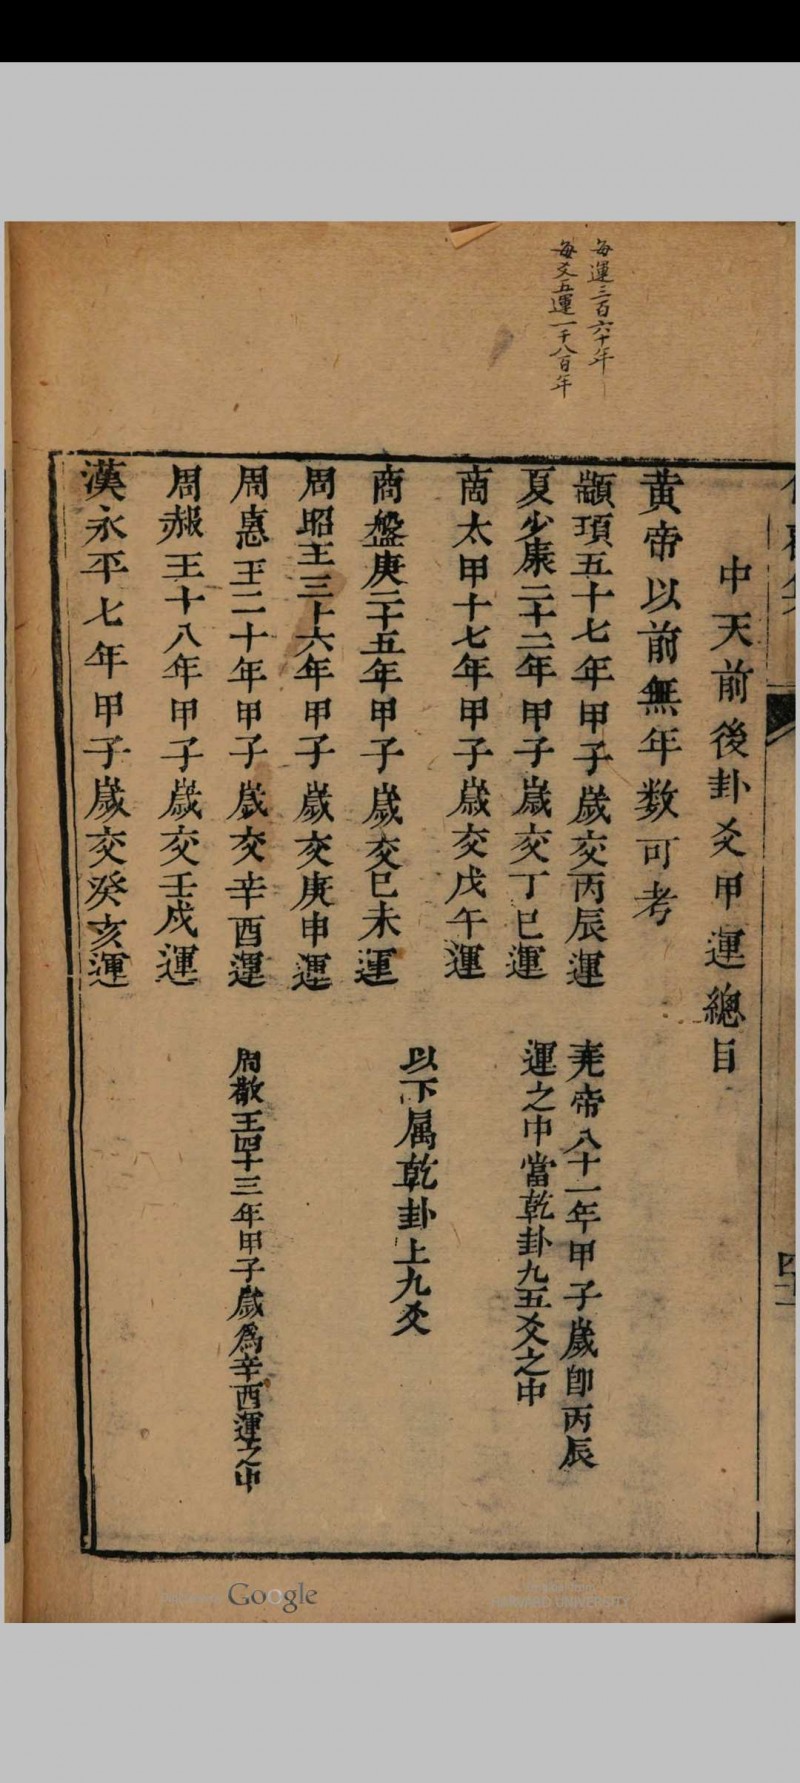 每運三百六十年
每爻五運一千八百年
四十二
中天前後卦爻甲運總目
黃帝以前無年数可考
顓頊五十七年甲子嵗交丙辰運
堯帝八十一年甲子嵗卽丙辰
運之中當乾卦九五爻之中
夏少康二十二年甲子嵗交丁巳運
商太甲十七年甲子嵗交戊午運
以下属乾卦上九爻
商盤庚二十五年甲子嵗交巳未運
周昭王三十六年甲子嵗交庚申運
周惠王二十年甲子嵗交辛酉運
周敬王四十三年甲子嵗爲辛酉運之中
周赧王十八年甲子嵗交壬戌運
漢永平七年甲子嵗交癸亥運
Google
HARVARD UNIVERSITY